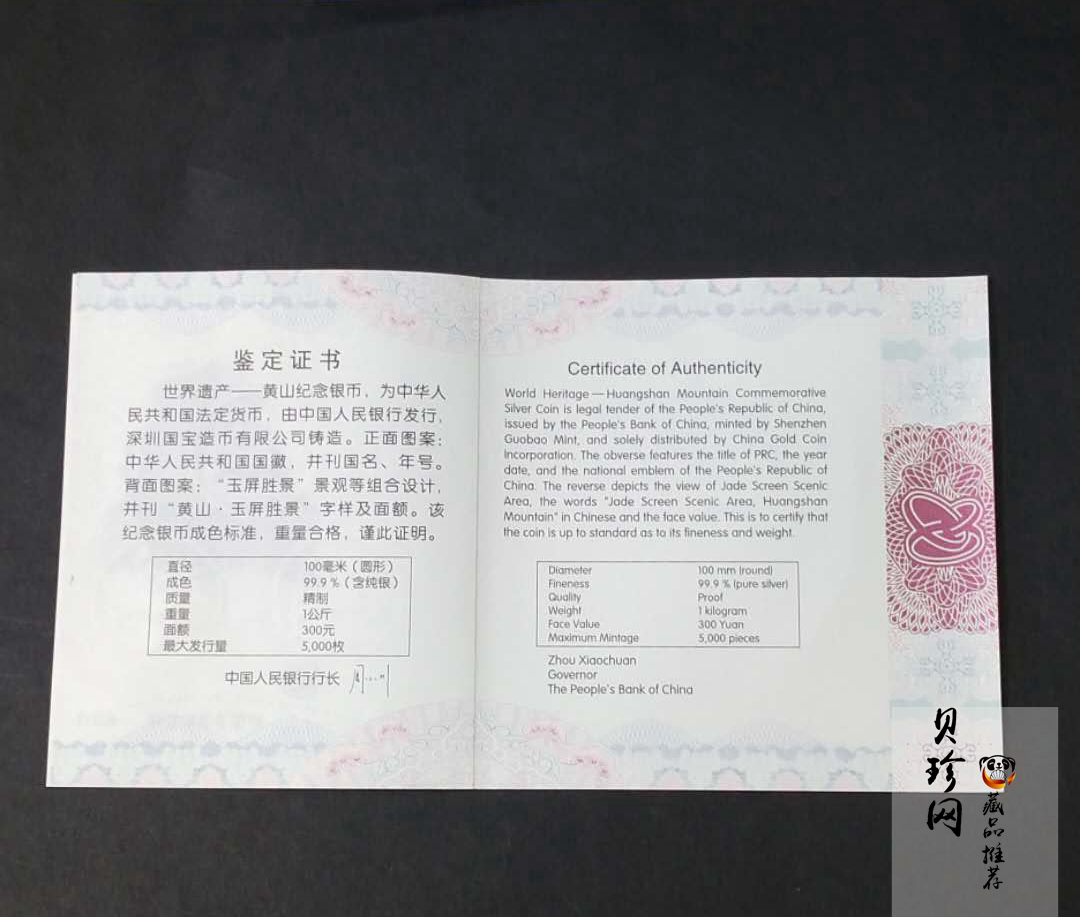 鉴定证书
世界遗产——黄山纪念银币，为中华人
民共和国法定货币，由中国人民银行发行，
深圳国宝造币有限公司铸造。正面图案：
中华人民共和国国徽，并刊国名、年号。
背面图案：“玉屏胜景”景观等组合设计，
并刊“黄山·玉屏胜景”字样及面额。该
纪念银币成色标准，重量合格，谨此证明。
直径 100毫米（圆形）
成色 99.9％（含纯银）
质量 精制
重量 1公斤
面额 300元
最大发行量 5,000枚
中国人民银行行长
Certificate of Authenticity
World Heritage — Huangshan Mountain Commemorative
Silver Coin is legal tender of the People's Republic of China,
issued by the People's Bank of China, minted by Shenzhen
Guobao Mint, and solely distributed by China Gold Coin
Incorporation. The obverse features the title of PRC, the year
date, and the national emblem of the People's Republic of
China. The reverse depicts the view of Jade Screen Scenic
Area, the words "Jade Screen Scenic Area, Huangshan
Mountain" in Chinese and the face value. This is to certify that
the coin is up to standard as to its fineness and weight.
Diameter 100 mm (round)
Fineness 99.9 % (pure silver)
Quality Proof
Weight 1 kilogram
Face Value 300 Yuan
Maximum Mintage 5,000 pieces
Zhou Xiaochuan
Governor
The People's Bank of China
贝珍网
藏品推荐